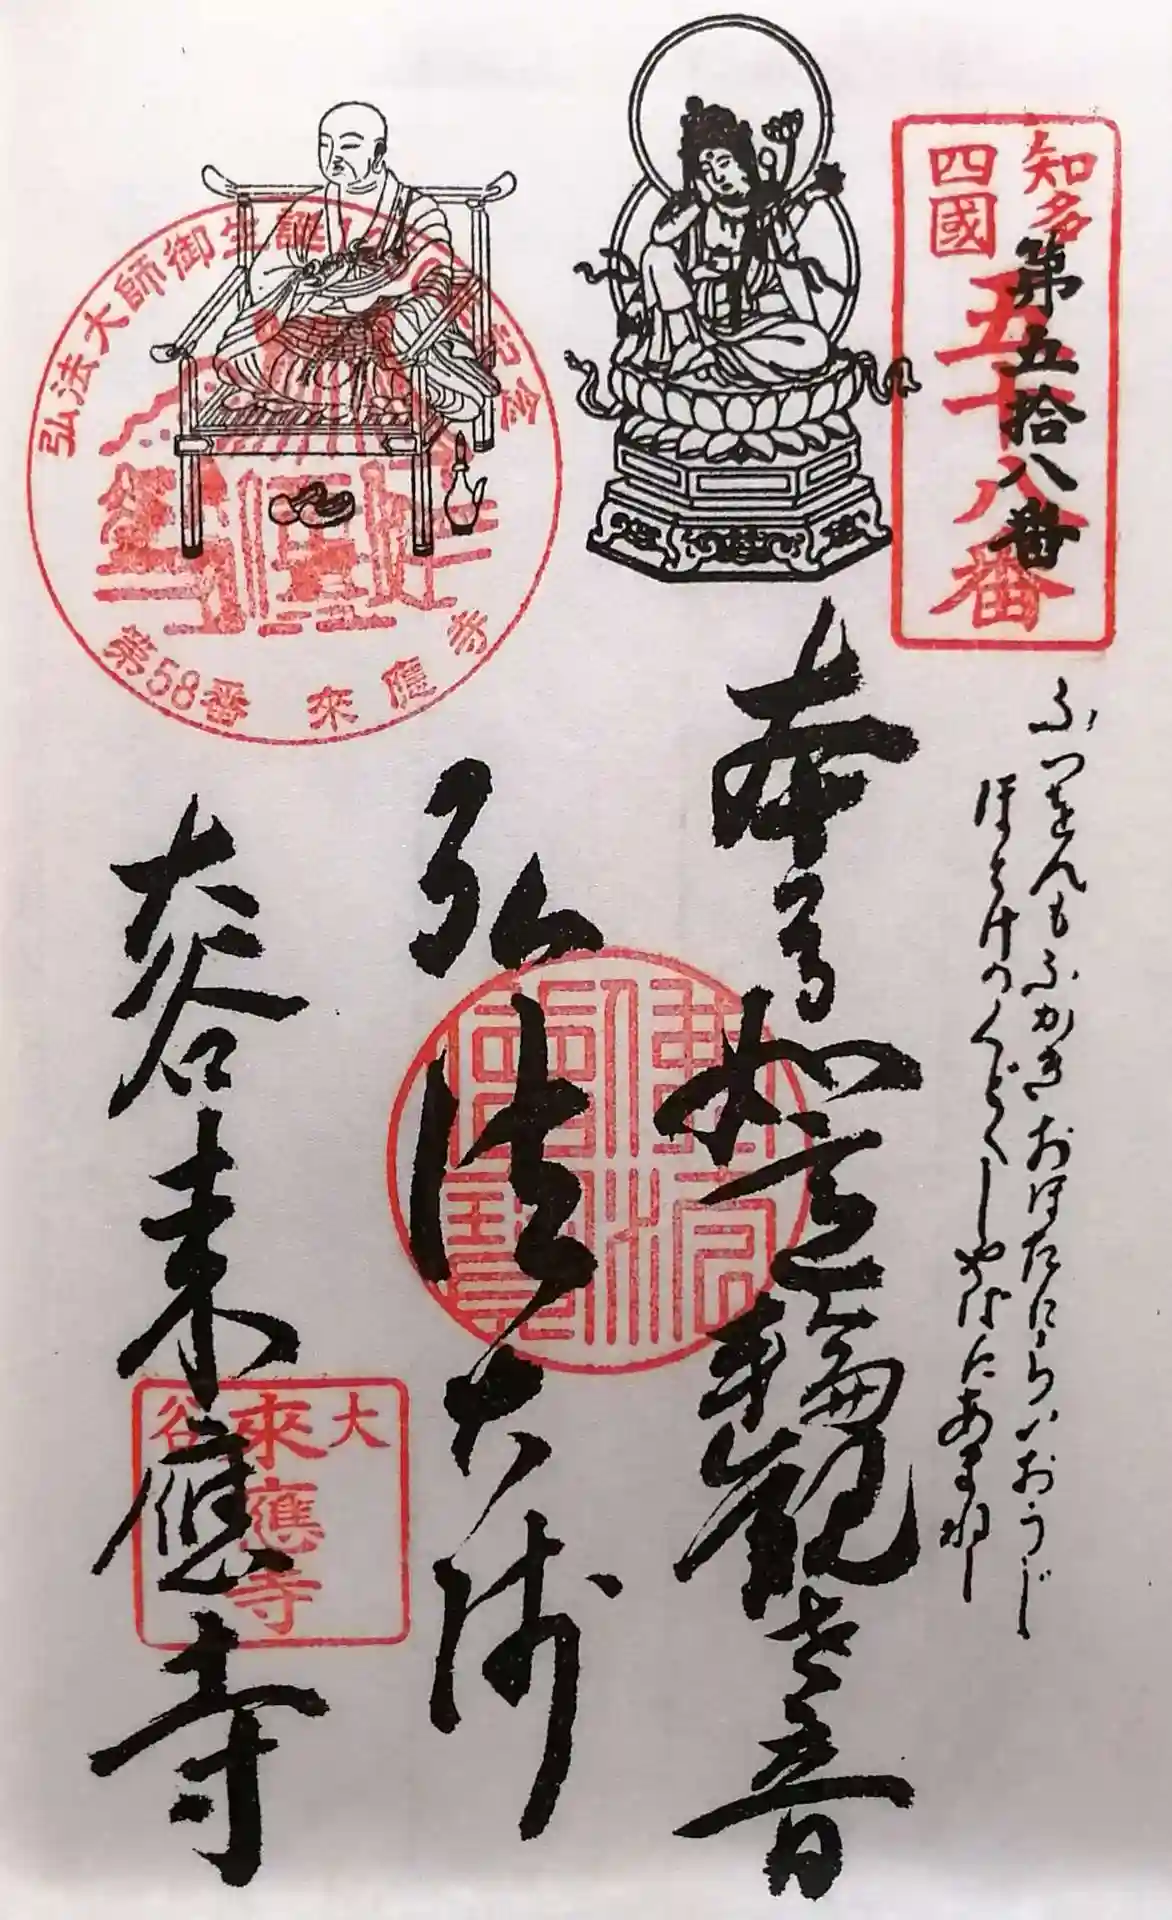 知多
四國
五十八番
第五拾八番
ふつをんもふかきおほたにらいおうじ
ほとけのくどくしやばにあまねし
本尊如意輪観世音
弘法大師
大谷来應寺
弘法大師御生誕
記念
第58番 來應寺
佛法僧寶
大谷
來應寺